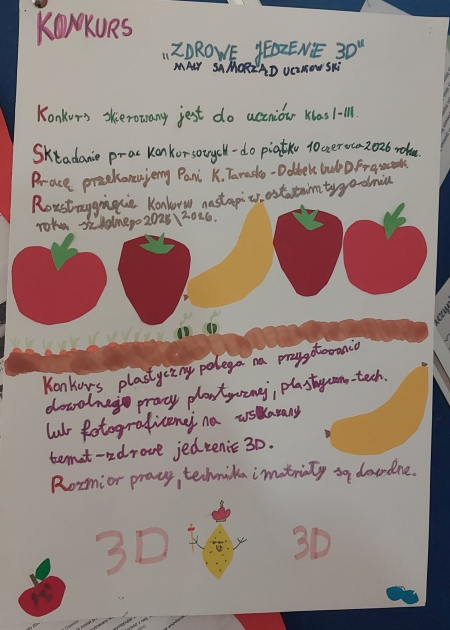 KONKURS
„ZDROWE JEDZENIE 3D"
MAŁY SAMORZĄD UCZNIOWSKI
Konkurs skierowany jest do uczniów klas I-III.
Składanie prac konkursowych - do piątku 10 czerwca 2026 roku.
Pracę przekazujemy Pani K. Tarasko - Dołbek lub D. Frąszczek
Rozstrzygnięcie Konkursu nastąpi w ostatnim tygodniu
roku szkolnego 2025\2026.
Konkurs plastyczny polega na przygotowaniu
dowolnego pracy plastycznej, plastyczno-tech.
lub fotograficznej na wskazany
temat-zdrowe jedzenie 3D.
Rozmiar pracy, technika i matriały są dowolne.
3D 3D